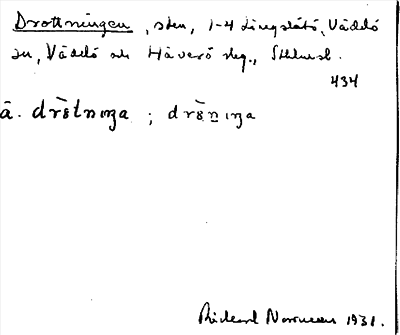 Drottningen, sten, 1-4 Lingslätö, Väddö
sn, Väddö och Häverö slg., Sthlmsl.
434
å. drɛ̀tnıŋa ; drɛ̀nıŋa
Rickard Norrman 1931.